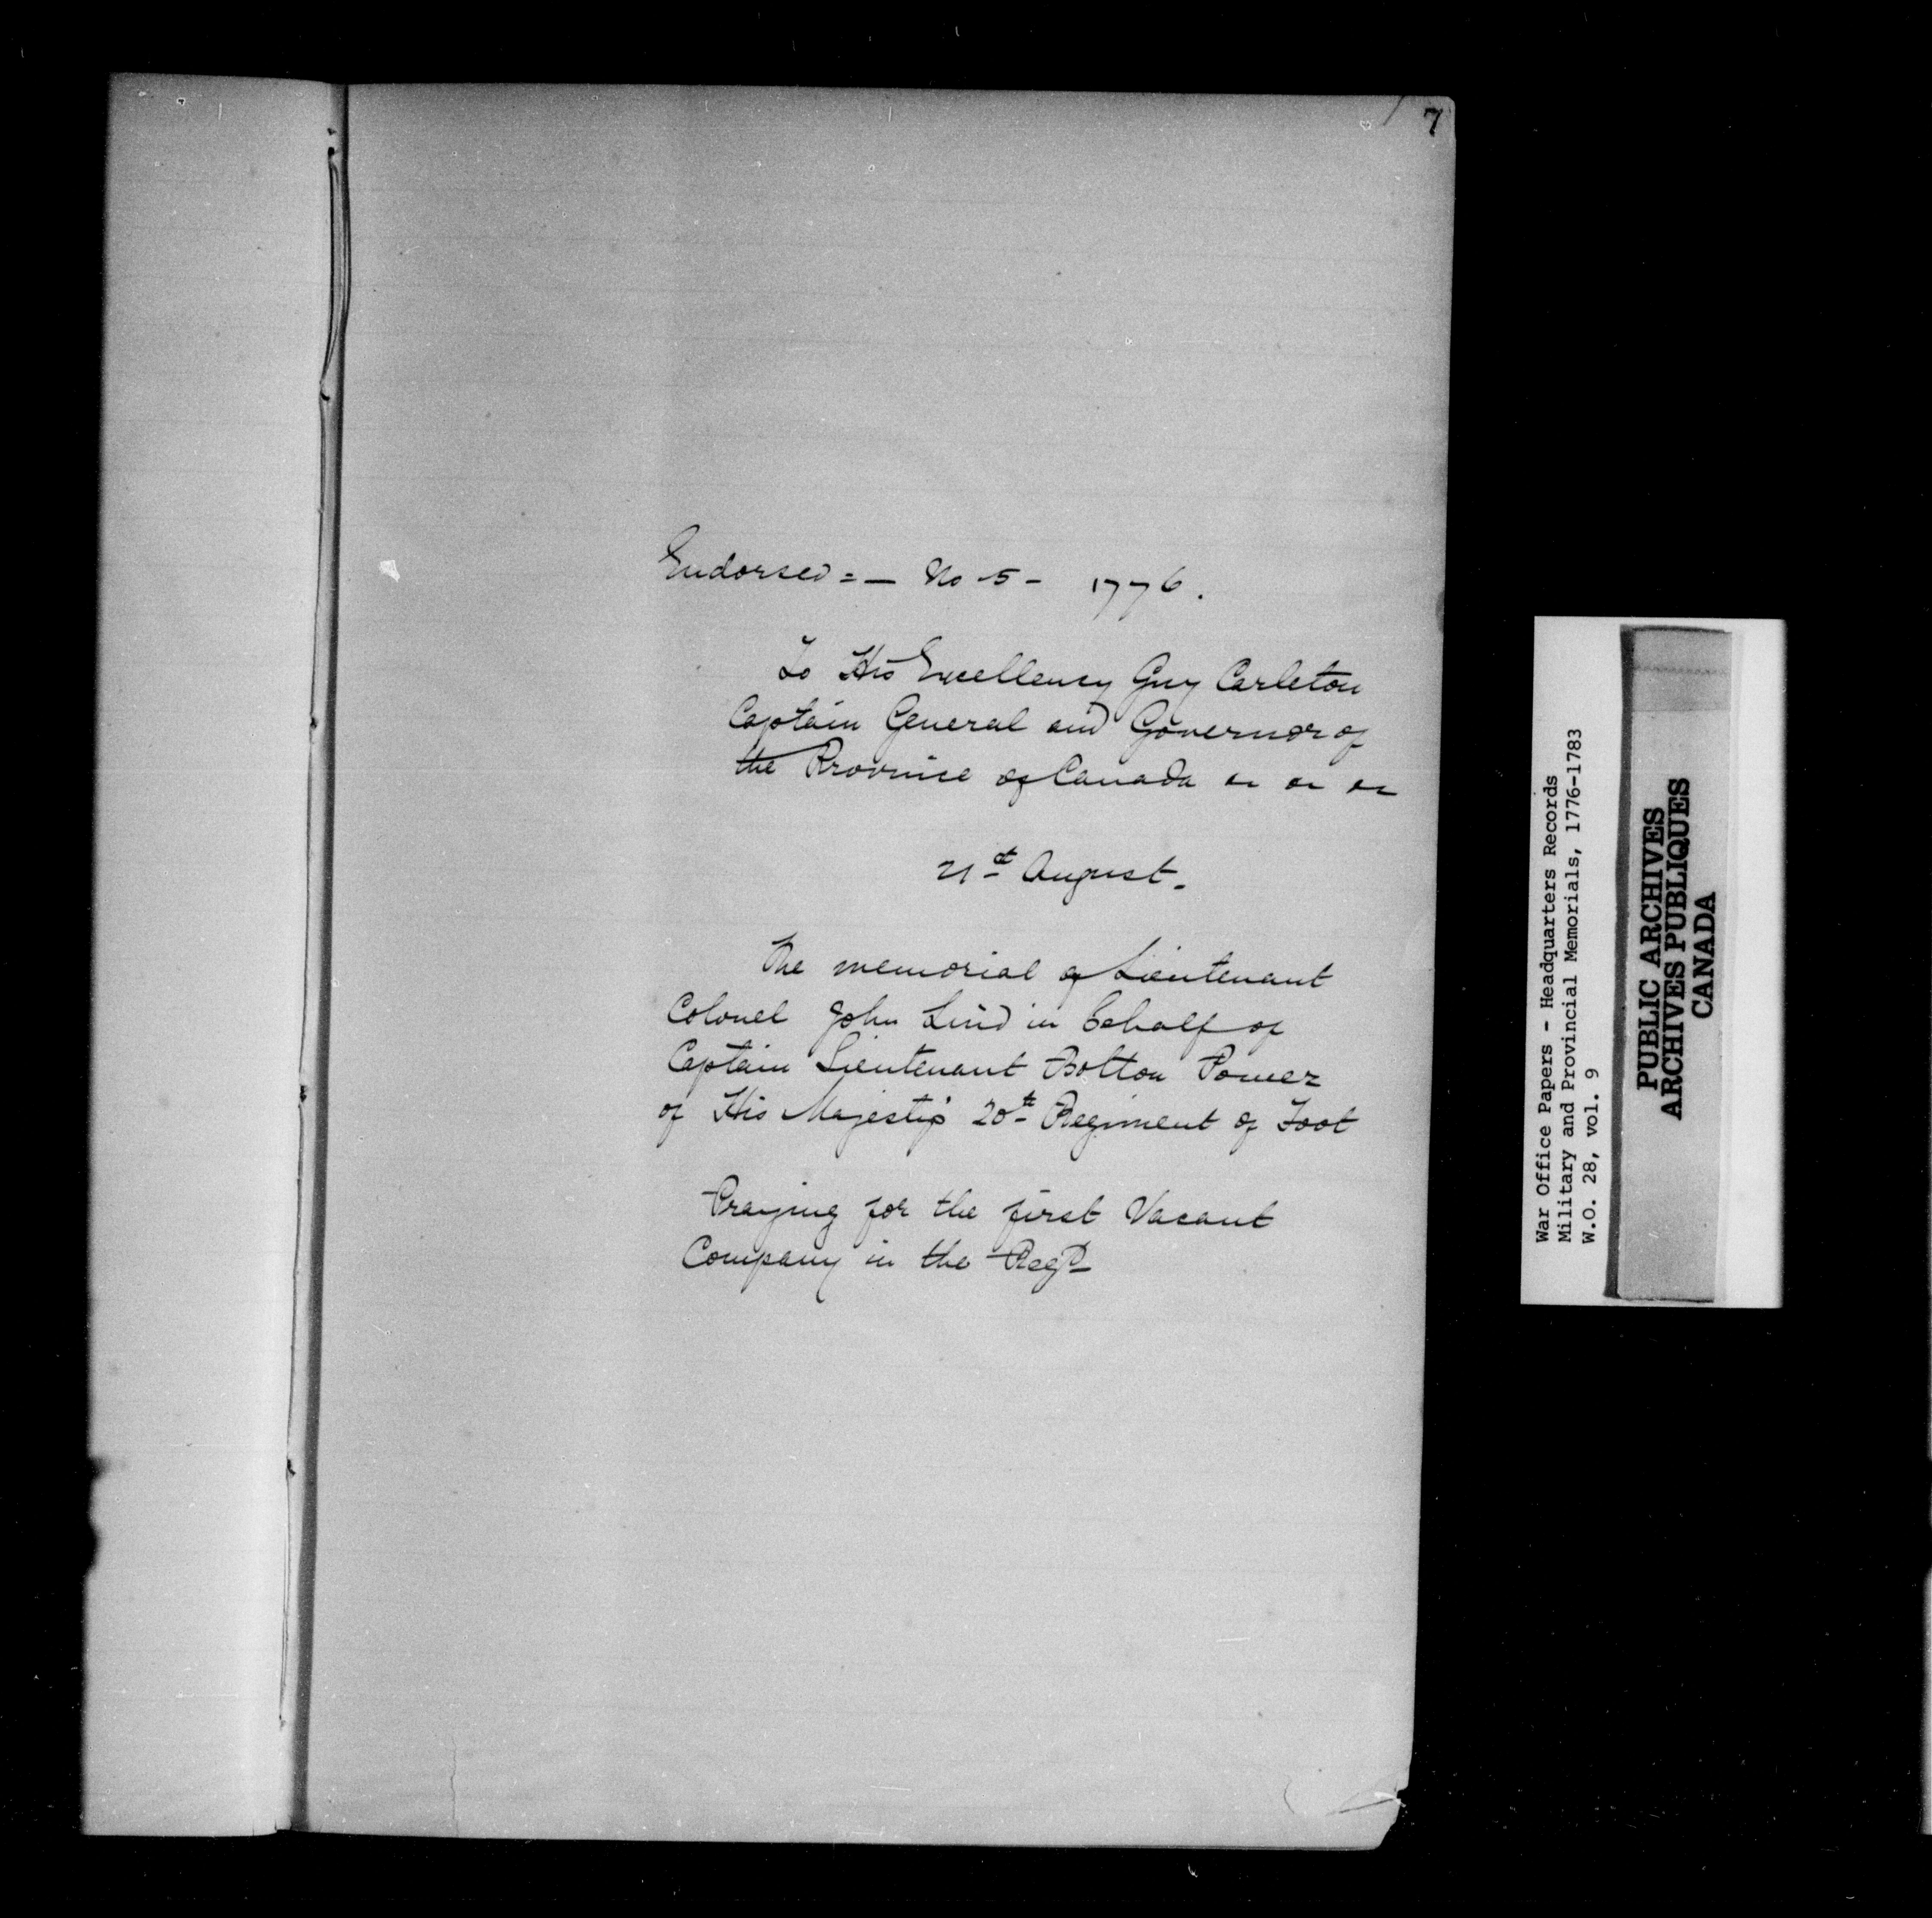 7
Endorsed = — No 5 - 1776.
To His Excellency Guy Carleton
Captain General and Governor of
the Province of Canada &c &c &c
21st August.
The memorial of Lieutenant
Colonel John Lind in behalf of
Captain Lieutenant Bolton Power
of His Majesty's 20th Regiment of Foot
Praying for the first Vacant
Company in the Regt
War Office Papers - Headquarters Records
Military and Provincial Memorials, 1776-1783
W.O. 28, vol. 9
PUBLIC ARCHIVES
ARCHIVES PUBLIQUES
CANADA